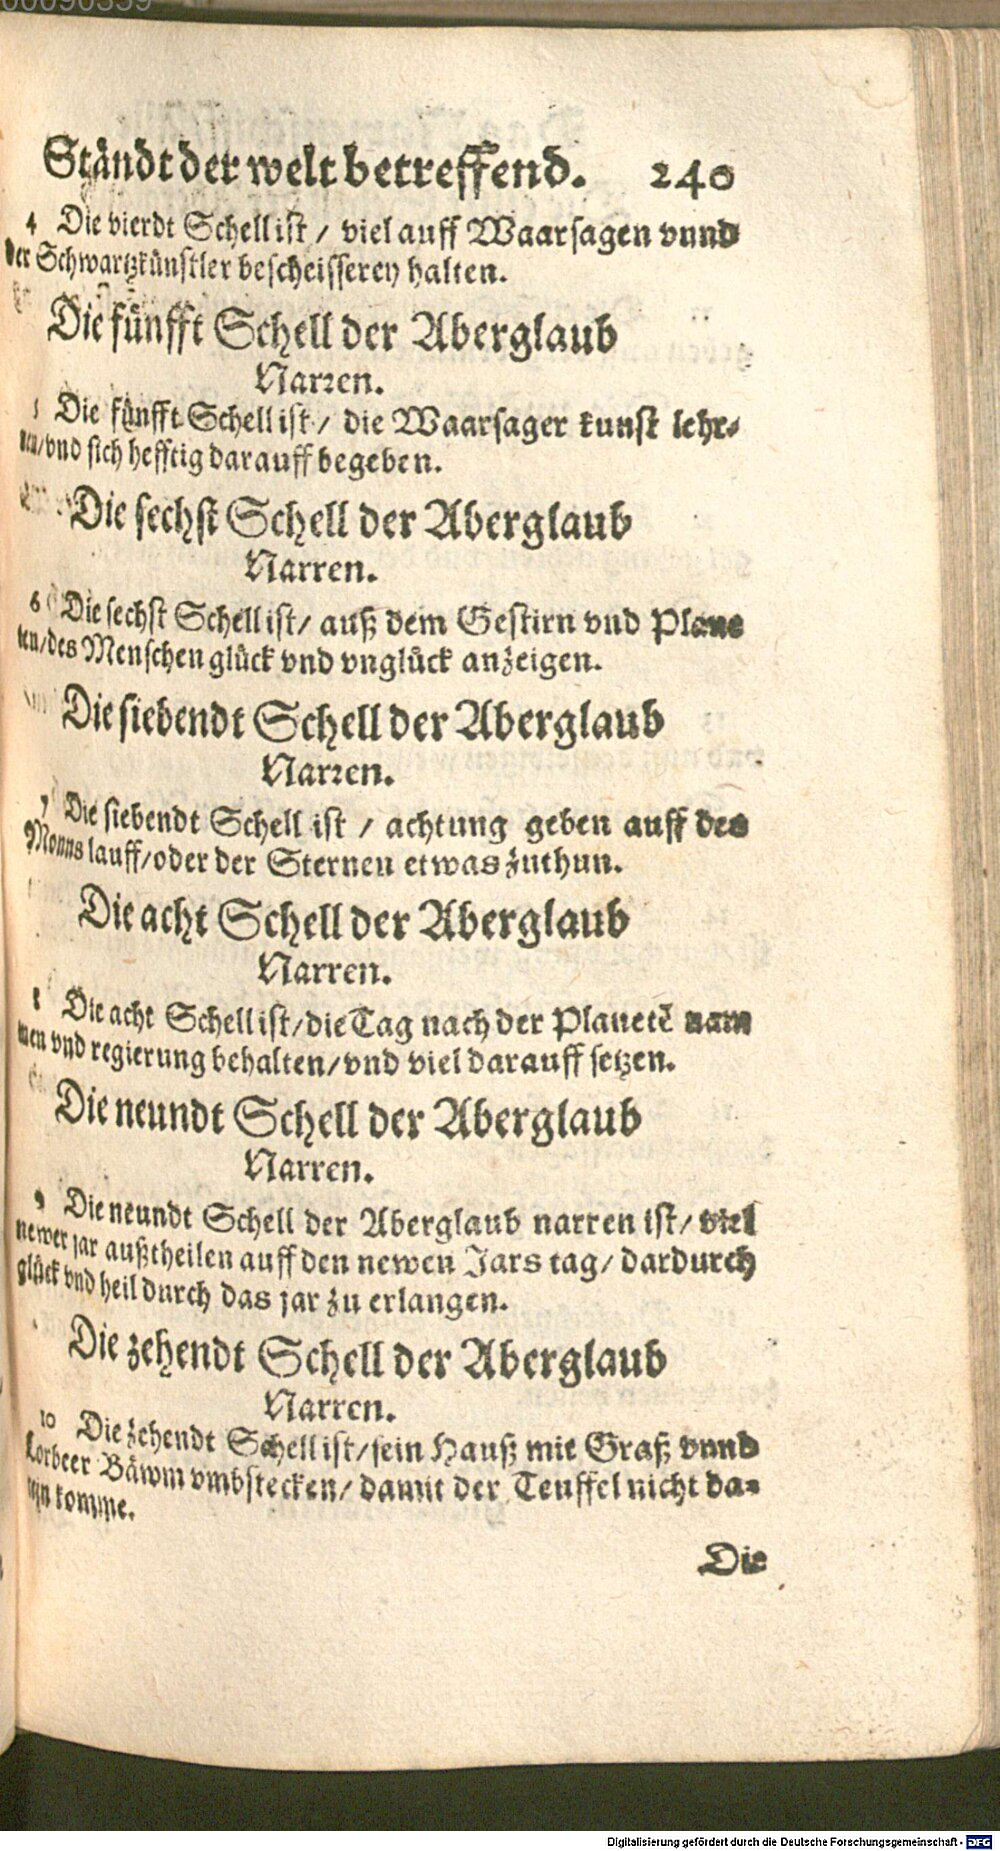 00090359
Ständt der welt betreffend. 240
4 Die vierdt Schell ist / viel auff Waarsagen vnnd
der Schwartzkünstler bescheisserey halten.
Die fünfft Schell der Aberglaub
Narren.
5 Die fünfft Schell ist / die Waarsager kunst lehr-
nen/vnd sich hefftig darauff begeben.
Die sechst Schell der Aberglaub
Narren.
6 Die sechst Schell ist/ auß dem Gestirn vnd Plane
ten/des Menschen glück vnd vnglück anzeigen.
Die siebendt Schell der Aberglaub
Narren.
7 Die siebendt Schell ist / achtung geben auff des
Monns lauff/oder der Sternen etwas zuthun.
Die acht Schell der Aberglaub
Narren.
8 Die acht Schell ist/die Tag nach der Planetē nam
men vnd regierung behalten/vnd viel darauff setzen.
Die neundt Schell der Aberglaub
Narren.
9 Die neundt Schell der Aberglaub narren ist/ viel
newer jar außtheilen auff den newen Jars tag/ dardurch
glück vnd heil durch das jar zu erlangen.
Die zehendt Schell der Aberglaub
Narren.
10 Die zehendt Schell ist/sein Hauß mit Graß vnnd
Lorbeer Bäwm vmbstecken/ damit der Teuffel nicht da-
reyn komme.
Die
Digitalisierung gefördert durch die Deutsche Forschungsgemeinschaft - DFG